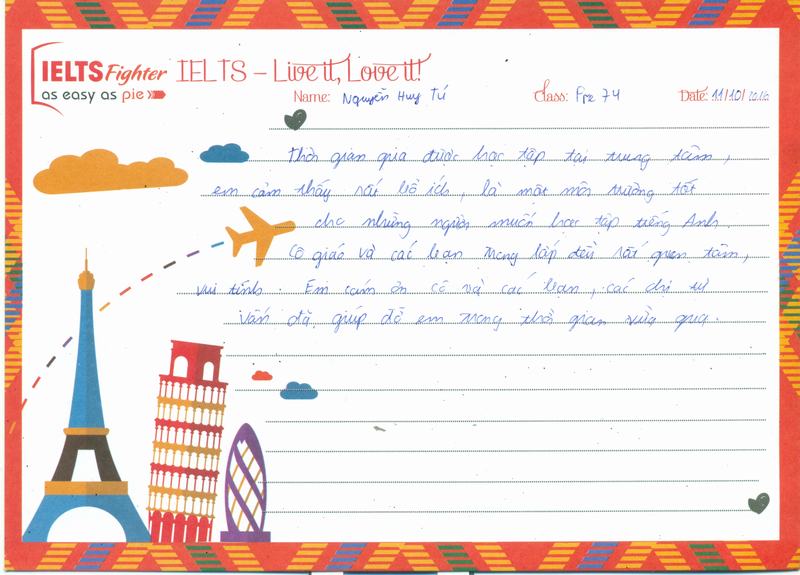 IELTS Fighter IELTS – Live it, Love it!
as easy as pie
Name: Nguyễn Huy Tú Class: Pre 74 Date: 11/10/
Thời gian qua được học tập tại trung tâm,
em cảm thấy rất bổ ích, là một môi trường tốt
cho những người muốn học tập tiếng Anh.
Cô giáo và các bạn trong lớp đều rất quan tâm,
vui tính. Em cám ơn cô và các bạn, các chị tư
vấn đã giúp đỡ em trong thời gian vừa qua.